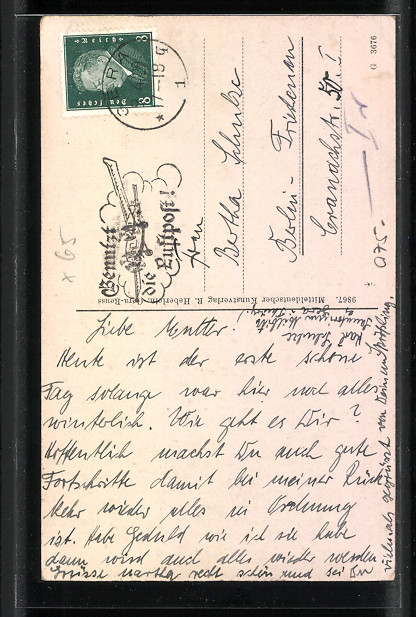 Deutsches
Reich
8 8
GERA
* 1
Benutzt
die Luftpost!
Frau
Bertha Schulze
Berlin - Friedenau
Cranachstr.
G 3676
x 65
075.-
9867. Mitteldeutscher Kunstverlag, R. Heberlein, Gera-Reuss
Karl Schulze
Liebe Mutter.
Heute ist der erste schöne
Tag solange war hier noch alles
winterlich. Wie geht es Dir?
Hoffentlich machst Du auch gute
Fortschritte damit bei meiner Rück
kehr wieder alles in Ordnung
ist. Habe Geduld wie ich sie habe
dann wird auch alles wieder werden.
Grüsse Martha recht schön und sei Du
vielmals gegrüsst von Deinem